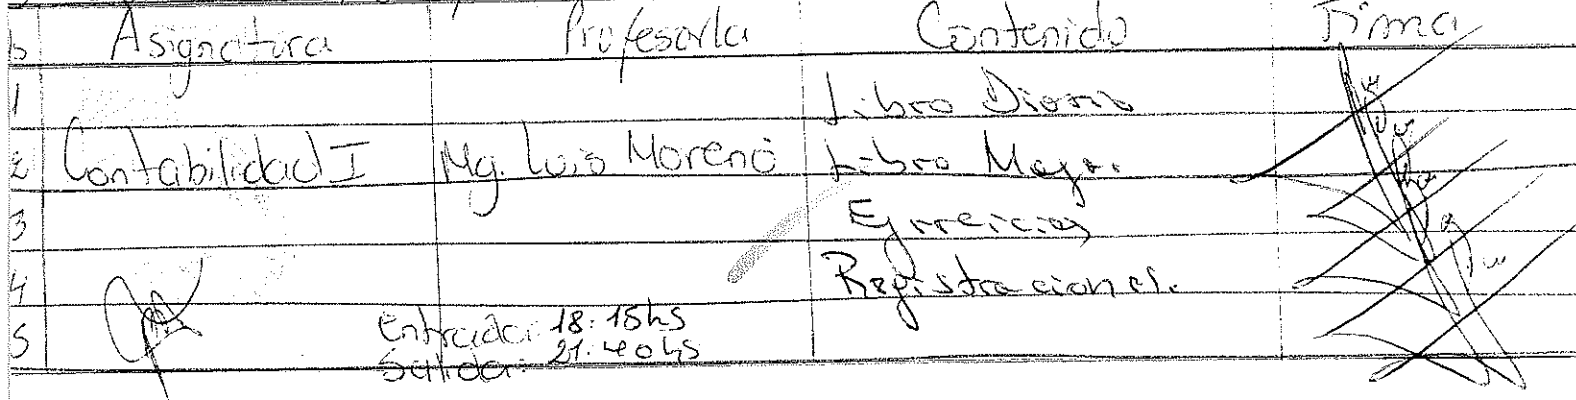 Asignatura Profesor/a Contenido Firma
1 Libro Diario
2 Contabilidad I Mg. Luis Moreno Libro Mayor.
3 Ejercicios
4 Registraciones.
5 Entrada: 18:15hs
Salida: 21:40hs